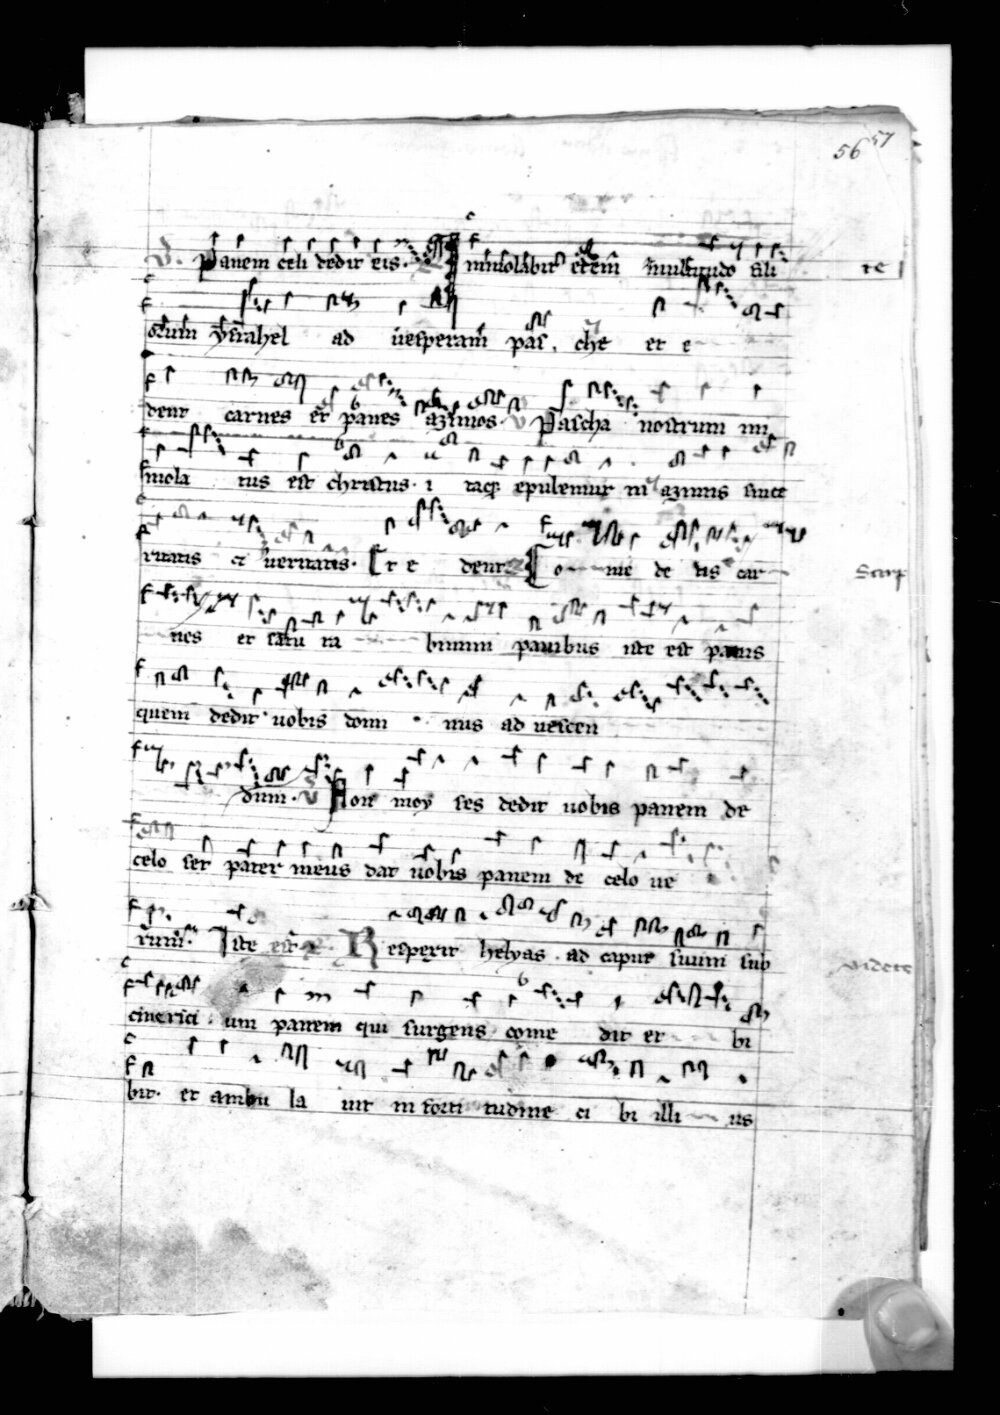 56 57
V. Panem celi dedit eis. Immolabit etem multitudo fili te
orum ysrahel ad uesperam pas che et e
dent carnes et panes azimos. V Pascha nostrum im
mola tus est christus. i taque epulemur in azimis since
ritatis et ueritatis. Et e dent Co me de tis car
nes et satu ra bimini panibus iste est panis
quem dedit uobis domi nus ad uescen
dum. V Non moy ses dedit uobis panem de
celo set pater meus dat uobis panem de celo ue
rum. Iste est. Respexit helyas ad caput suum sub videte
cinerici um panem qui surgens come dit et bi
bit. et ambu la uit in forti tudine ci bi illi us